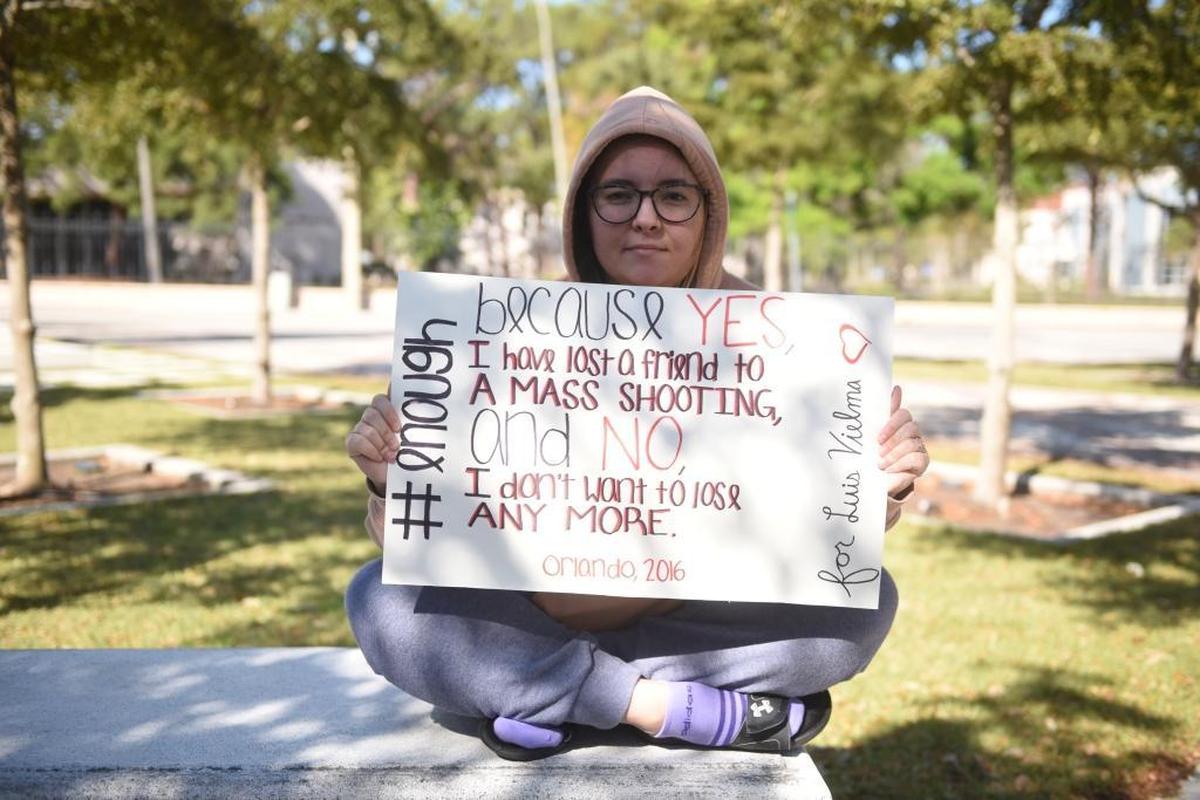 #enough
because YES,
I have lost a friend to
A MASS SHOOTING,
and NO,
I don't want to lose
ANY MORE.
Orlando, 2016
for Luis Vielma
adidas